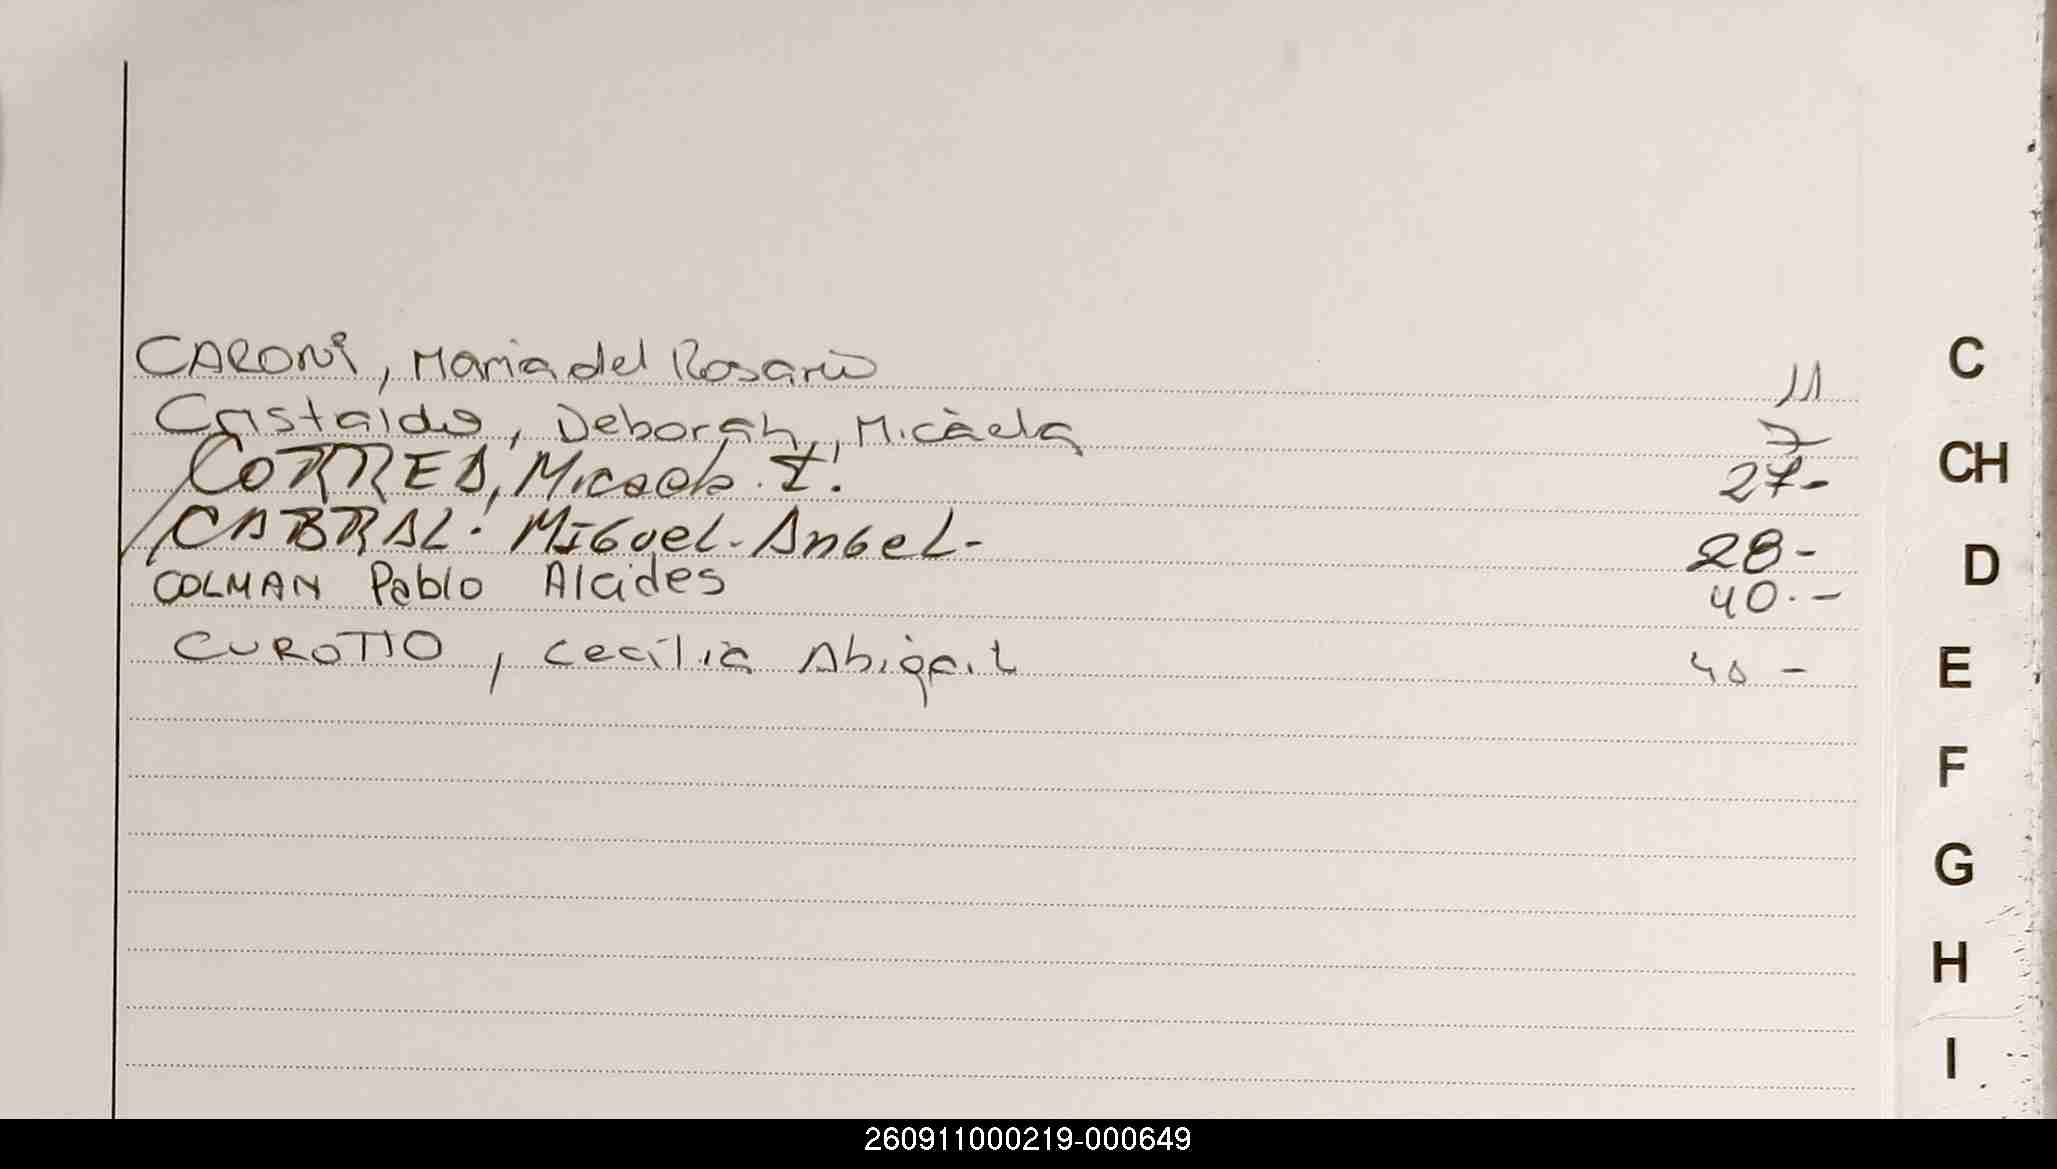 CARONI, Maria del Rosario 11
Castaldo, Deborah, Micaela 7
CORREA, Micaela. I. 27-
CABRAL. MIGUEL. ANGEL- 28-
COLMAN Pablo Alcides 40.-
CUROTTO, Cecilia Abigail 40 -
C
CH
D
E
F
G
H
I
260911000219-000649